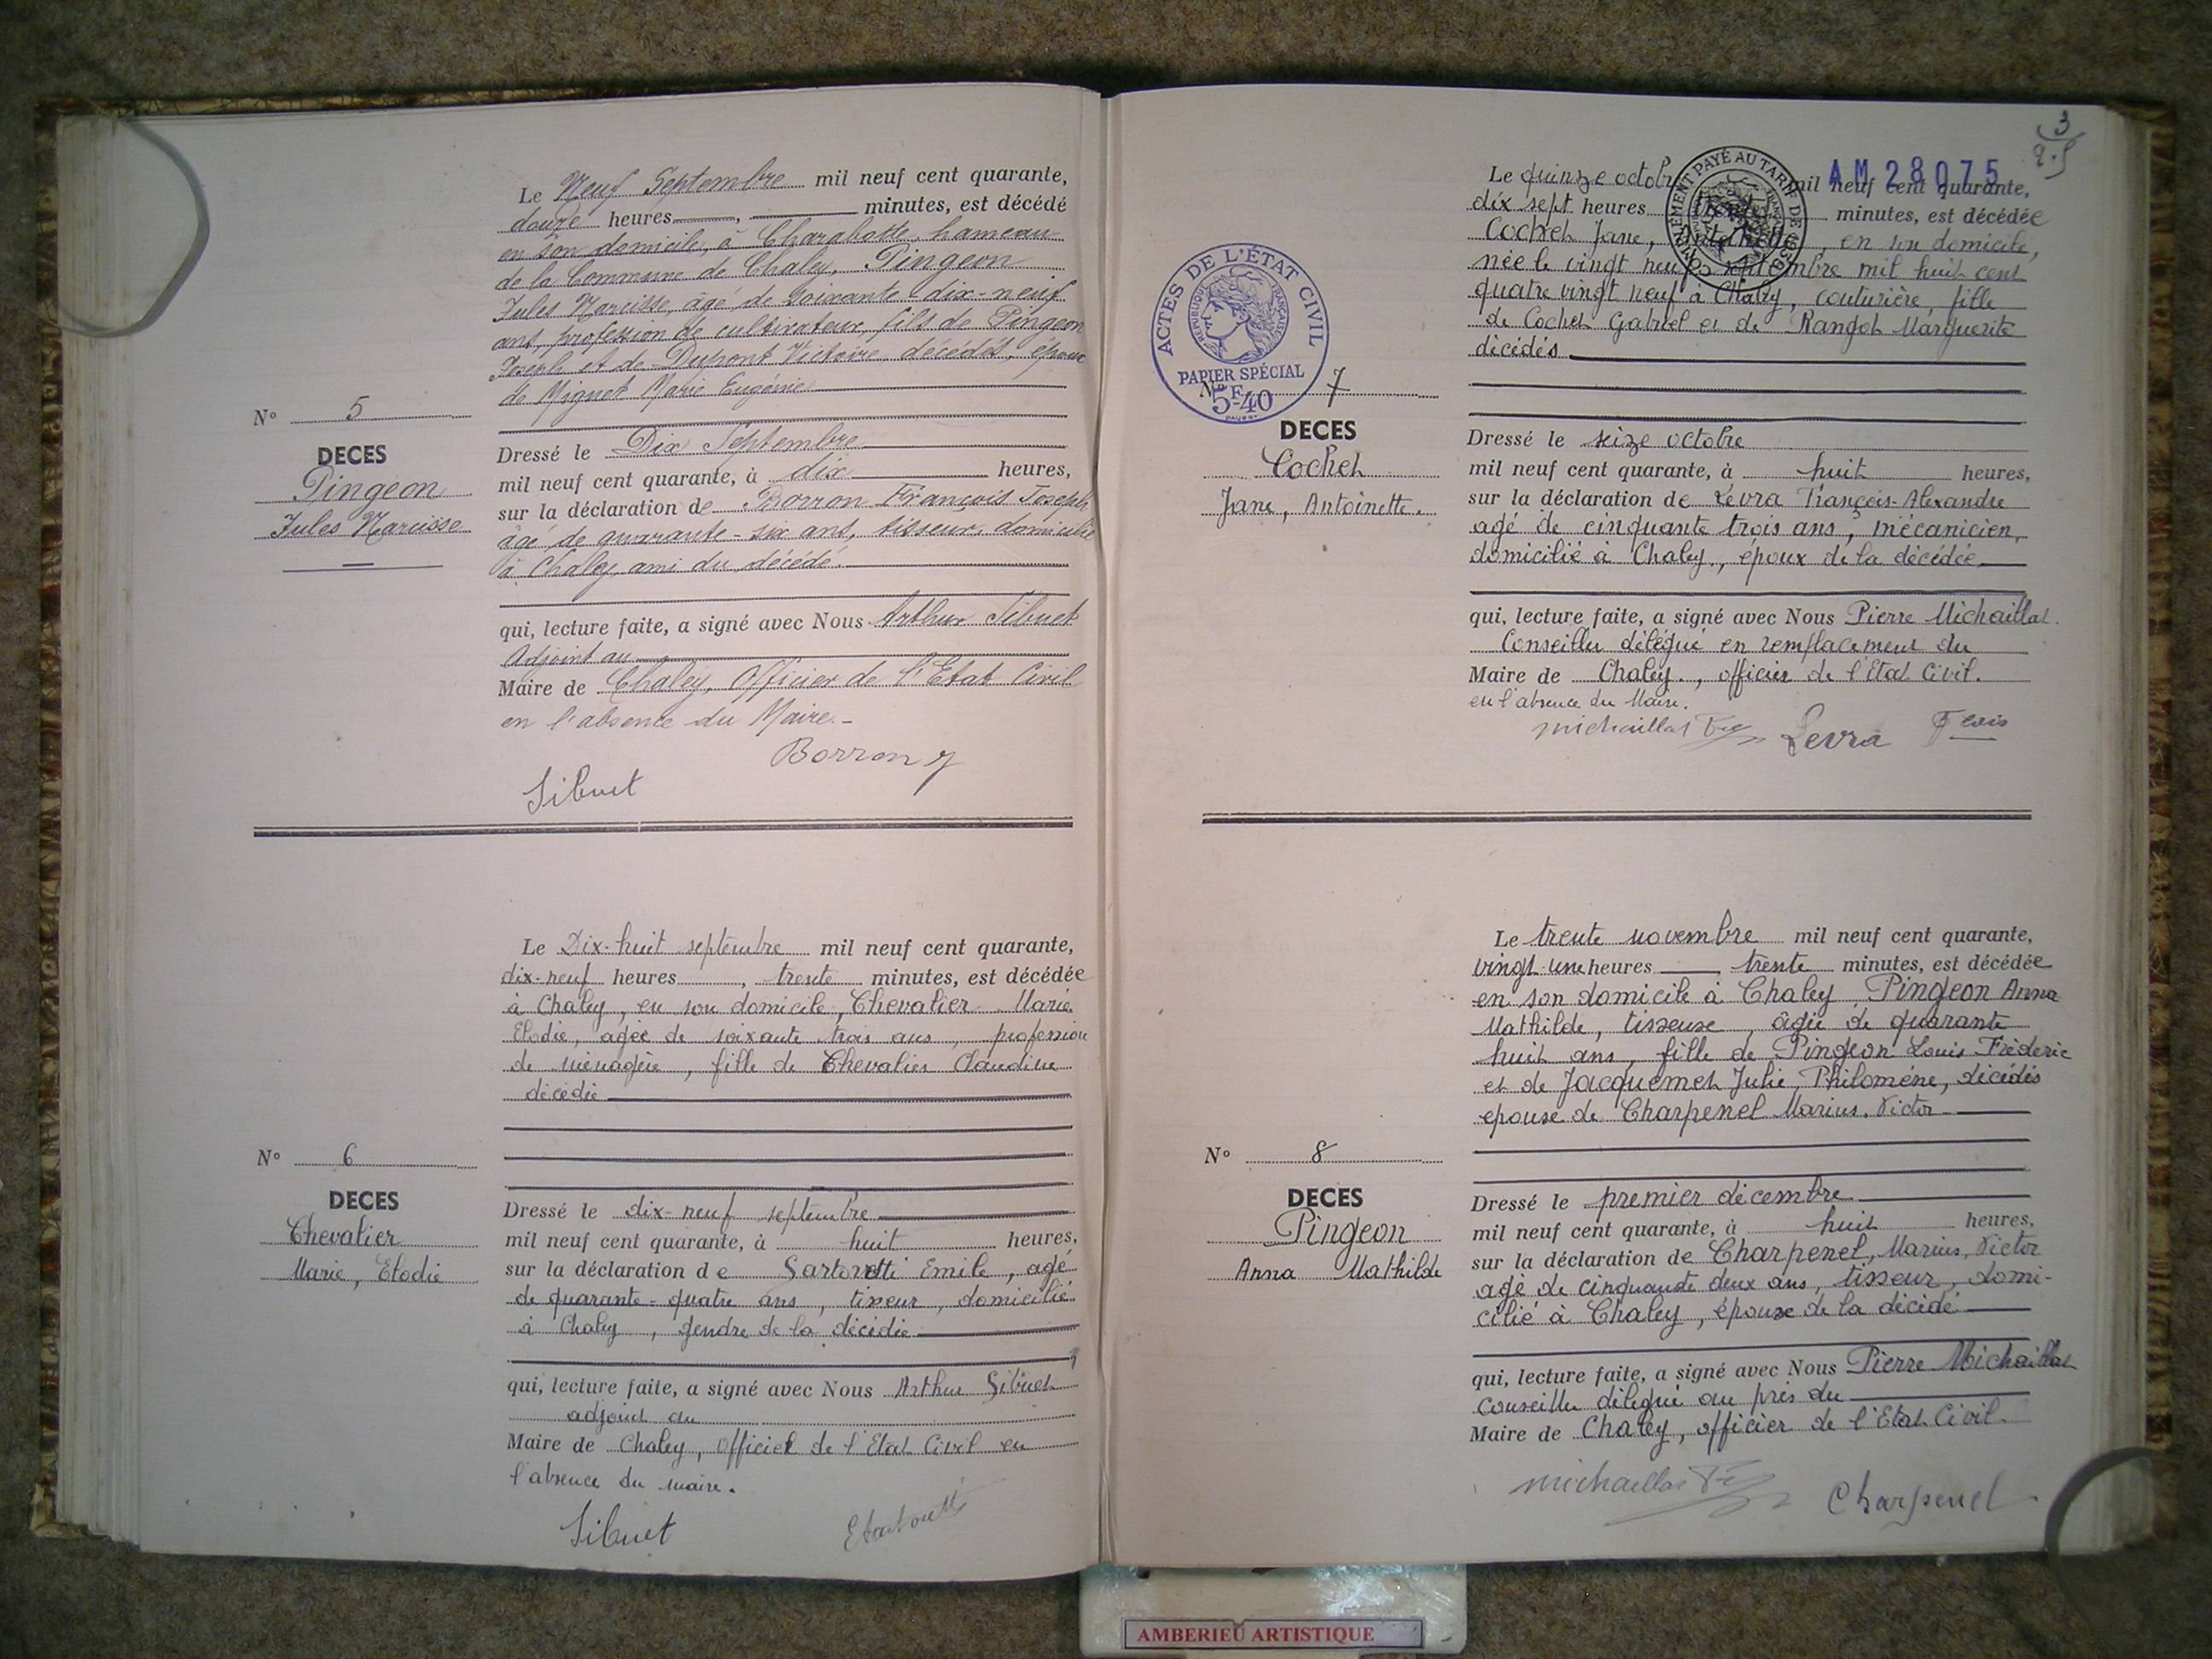 Le Neuf Septembre mil neuf cent quarante,
douze heures, minutes, est décédé
en son domicile, à Charabotte, hameau
de la Commune de Chaley, Pingeon
Jules Narcisse, âgé de soixante-dix-neuf
ans, profession de cultivateur, fils de Pingeon
Joseph et de Dupont Victoire, décédés, époux
de Mignet Marie Eugénie
N° 5
DECES
Pingeon
Jules Narcisse
Dressé le Dix Septembre
mil neuf cent quarante, à dix heures,
sur la déclaration de Borron François Joseph
âgé de quarante-six ans, tisseur, domicilié
à Chaley, ami du décédé.
qui, lecture faite, a signé avec Nous Arthur Sibuet
Adjoint au
Maire de Chaley, Officier de l'Etat Civil
en l'absence du Maire.-
Borron
Sibuet
Le Dix-huit septembre mil neuf cent quarante,
dix-neuf heures, trente minutes, est décédée
à Chaley, en son domicile, Chevalier Marie
Elodie, agée de soixante trois ans, profession
de ménagère, fille de Chevalier Claudine
décédée
N° 6
DECES
Chevalier
Marie, Elodie
Dressé le dix-neuf septembre
mil neuf cent quarante, à huit heures,
sur la déclaration de Emile, agé
de quarante-quatre ans, tisseur, domicilié
à Chaley, gendre de la décédée
qui, lecture faite, a signé avec Nous Arthur Sibuet
adjoint au
Maire de Chaley, officier de l'Etat Civil en
l'absence du maire.
Sibuet
3
AM 28075
Le quinze octobre mil neuf cent quarante,
dix sept heures trente minutes, est décédée
Cochet Jane, Antoinette, en son domicile,
née le vingt neuf septembre mil huit cent
quatre vingt neuf à Chaley, couturière, fille
de Cochet Gabriel et de Rangot Marguerite
décédés
ACTES DE L'ÉTAT CIVIL
RÉPUBLIQUE FRANÇAISE
PAPIER SPÉCIAL
5F40
N° 7
DECES
Cochet
Jane, Antoinette.
Dressé le seize octobre
mil neuf cent quarante, à huit heures,
sur la déclaration de Levra François-Alexandre
agé de cinquante trois ans, mécanicien,
domicilié à Chaley, époux de la décédée
qui, lecture faite, a signé avec Nous Pierre Michaillat.
Conseiller délégué en remplacement du
Maire de Chaley., officier de l'Etat Civil.
en l'absence du Maire.
michaillat Levra Fçois
Le trente novembre mil neuf cent quarante,
vingt-une heures trente minutes, est décédée
en son domicile à Chaley Pingeon Anna
Mathilde, tisseuse, âgée de quarante
huit ans, fille de Pingeon Louis Frédéric
et de Jacquemet Julie, Philomène, décédés
epouse de Charpenel Marius. Victor
N° 8
DECES
Pingeon
Anna Mathilde
Dressé le premier décembre
mil neuf cent quarante, à huit heures,
sur la déclaration de Charpenel, Marius, Victor
agé de cinquante deux ans, tisseur, domi-
cilié à Chaley, épouse de la décédé
qui, lecture faite, a signé avec Nous Pierre Michaillat
Conseiller délégué au près du
Maire de Chaley, officier de l'Etat Civil.
michaillat Charpenel
AMBERIEU ARTISTIQUE